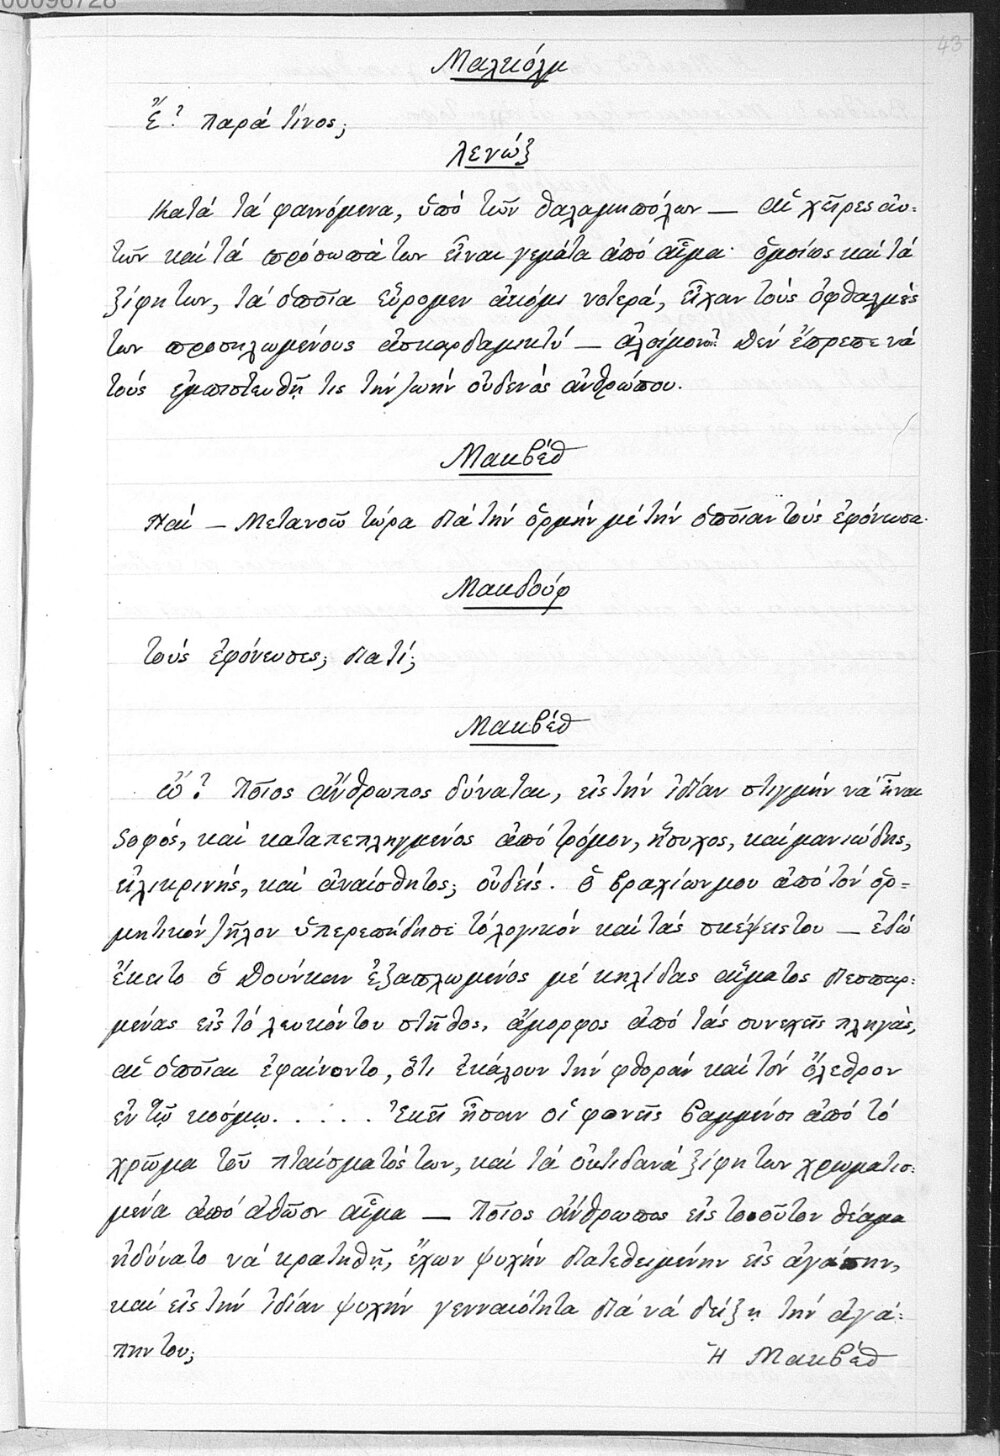 00096728
43
Μαλκόλμ
Ἔ! παρὰ τίνος;
Λενώξ
Κατὰ τὰ φαινόμενα, ὑπὸ τῶν θαλαμηπόλων — αἱ χεῖρες αὐ-
τῶν καὶ τὰ πρόσωπά των εἶναι γεμάτα ἀπὸ αἷμα· ὁμοίως καὶ τὰ
ξίφη των, τὰ ὁποῖα εὕρομεν ἀκόμη νοτερά, εἶχαν τοὺς ὀφθαλμούς
των προσηλωμένους ἀσκαρδαμυκτί — ἀλοίμονον! Δὲν ἔπρεπε νὰ
τοὺς ἐμπιστευθῇ τις τὴν ζωὴν οὐδενὸς ἀνθρώπου.
Μακβέθ
Καὶ — Μετανοῶ τώρα διὰ τὴν ὁρμὴν μὲ τὴν ὁποίαν τοὺς ἐφόνευσα.
Μακδούφ
τοὺς ἐφόνευσες; διατί;
Μακβέθ
Ὤ! Ποῖος ἄνθρωπος δύναται, εἰς τὴν ἰδίαν στιγμὴν νὰ ἦναι
Σοφός, καὶ καταπεπληγμένος ἀπὸ τρόμον, ἥσυχος, καὶ μανιώδης,
εἰλικρινής, καὶ ἀναίσθητος; οὐδείς. Ὁ βραχίων μου ἀπὸ τὸν ὁρ-
μητικὸν ζῆλον ὑπερεπήδησε τὸ λογικὸν καὶ τὰς σκέψεις του — ἐδῶ
ἔκειτο ὁ Δούνκαν ἐξαπλωμένος μὲ κηλίδας αἵματος πεσπαρ-
μένας εἰς τὸ λευκόν του στῆθος, ἄμορφος ἀπὸ τὰς συνεχεῖς πληγάς,
αἱ ὁποῖαι ἐφαίνοντο, ὅτι ἐκάλουν τὴν φθορὰν καὶ τὸν ὄλεθρον
ἐν τῷ κόσμῳ. . . . . Ἐκεῖ ἦσαν οἱ φονεῖς βαμμένοι ἀπὸ τὸ
χρῶμα τοῦ πταίσματός των, καὶ τὰ οὐτιδανὰ ξίφη των χρωματισ-
μένα ἀπὸ ἀθῶον αἷμα — Ποῖος ἄνθρωπος εἰς τοσοῦτον θέαμα
ἠδύνατο νὰ κρατηθῇ, ἔχων ψυχὴν διατεθειμένην εἰς ἀγάπην,
καὶ εἰς τὴν ἰδίαν ψυχὴν γενναιότητα διὰ νὰ δείξῃ τὴν ἀγά-
πην του;
Ἡ Μακβέθ